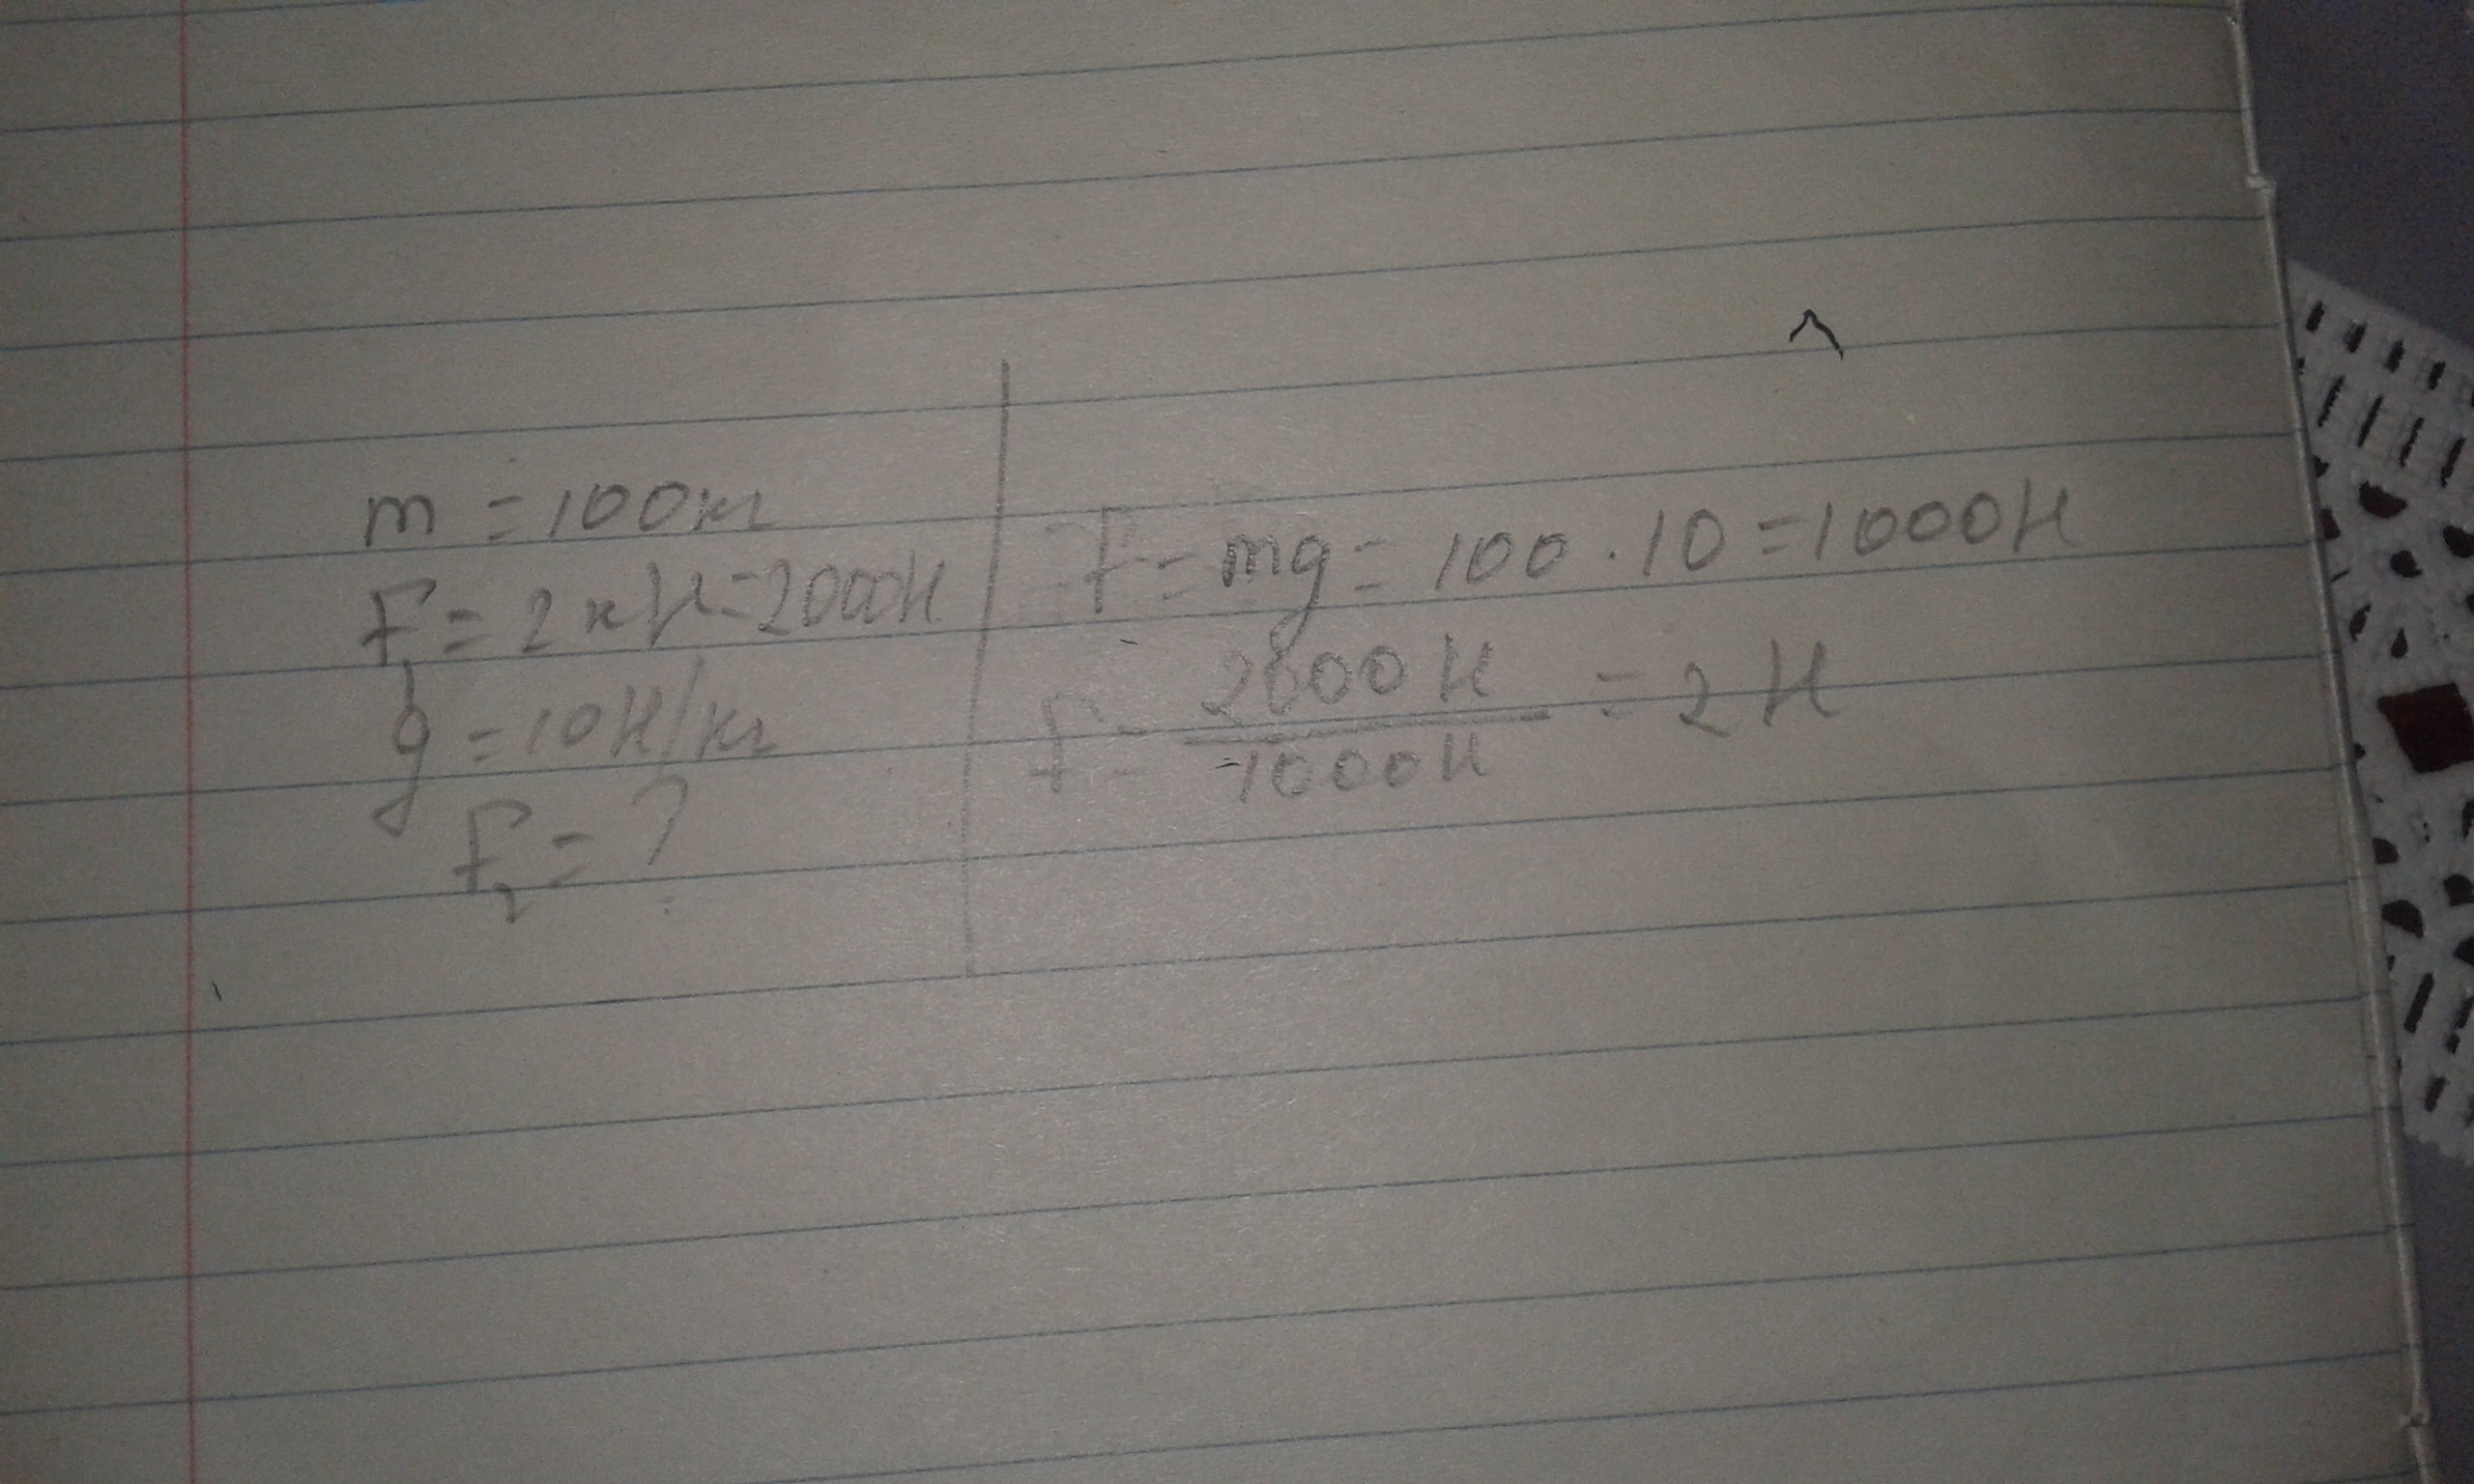 m = 100кг
F₁ = 2кН=2000Н
g = 10Н/кг
F₂ = ?
F = mg = 100 · 10 = 1000Н
F = 2000Н / 1000Н = 2Н